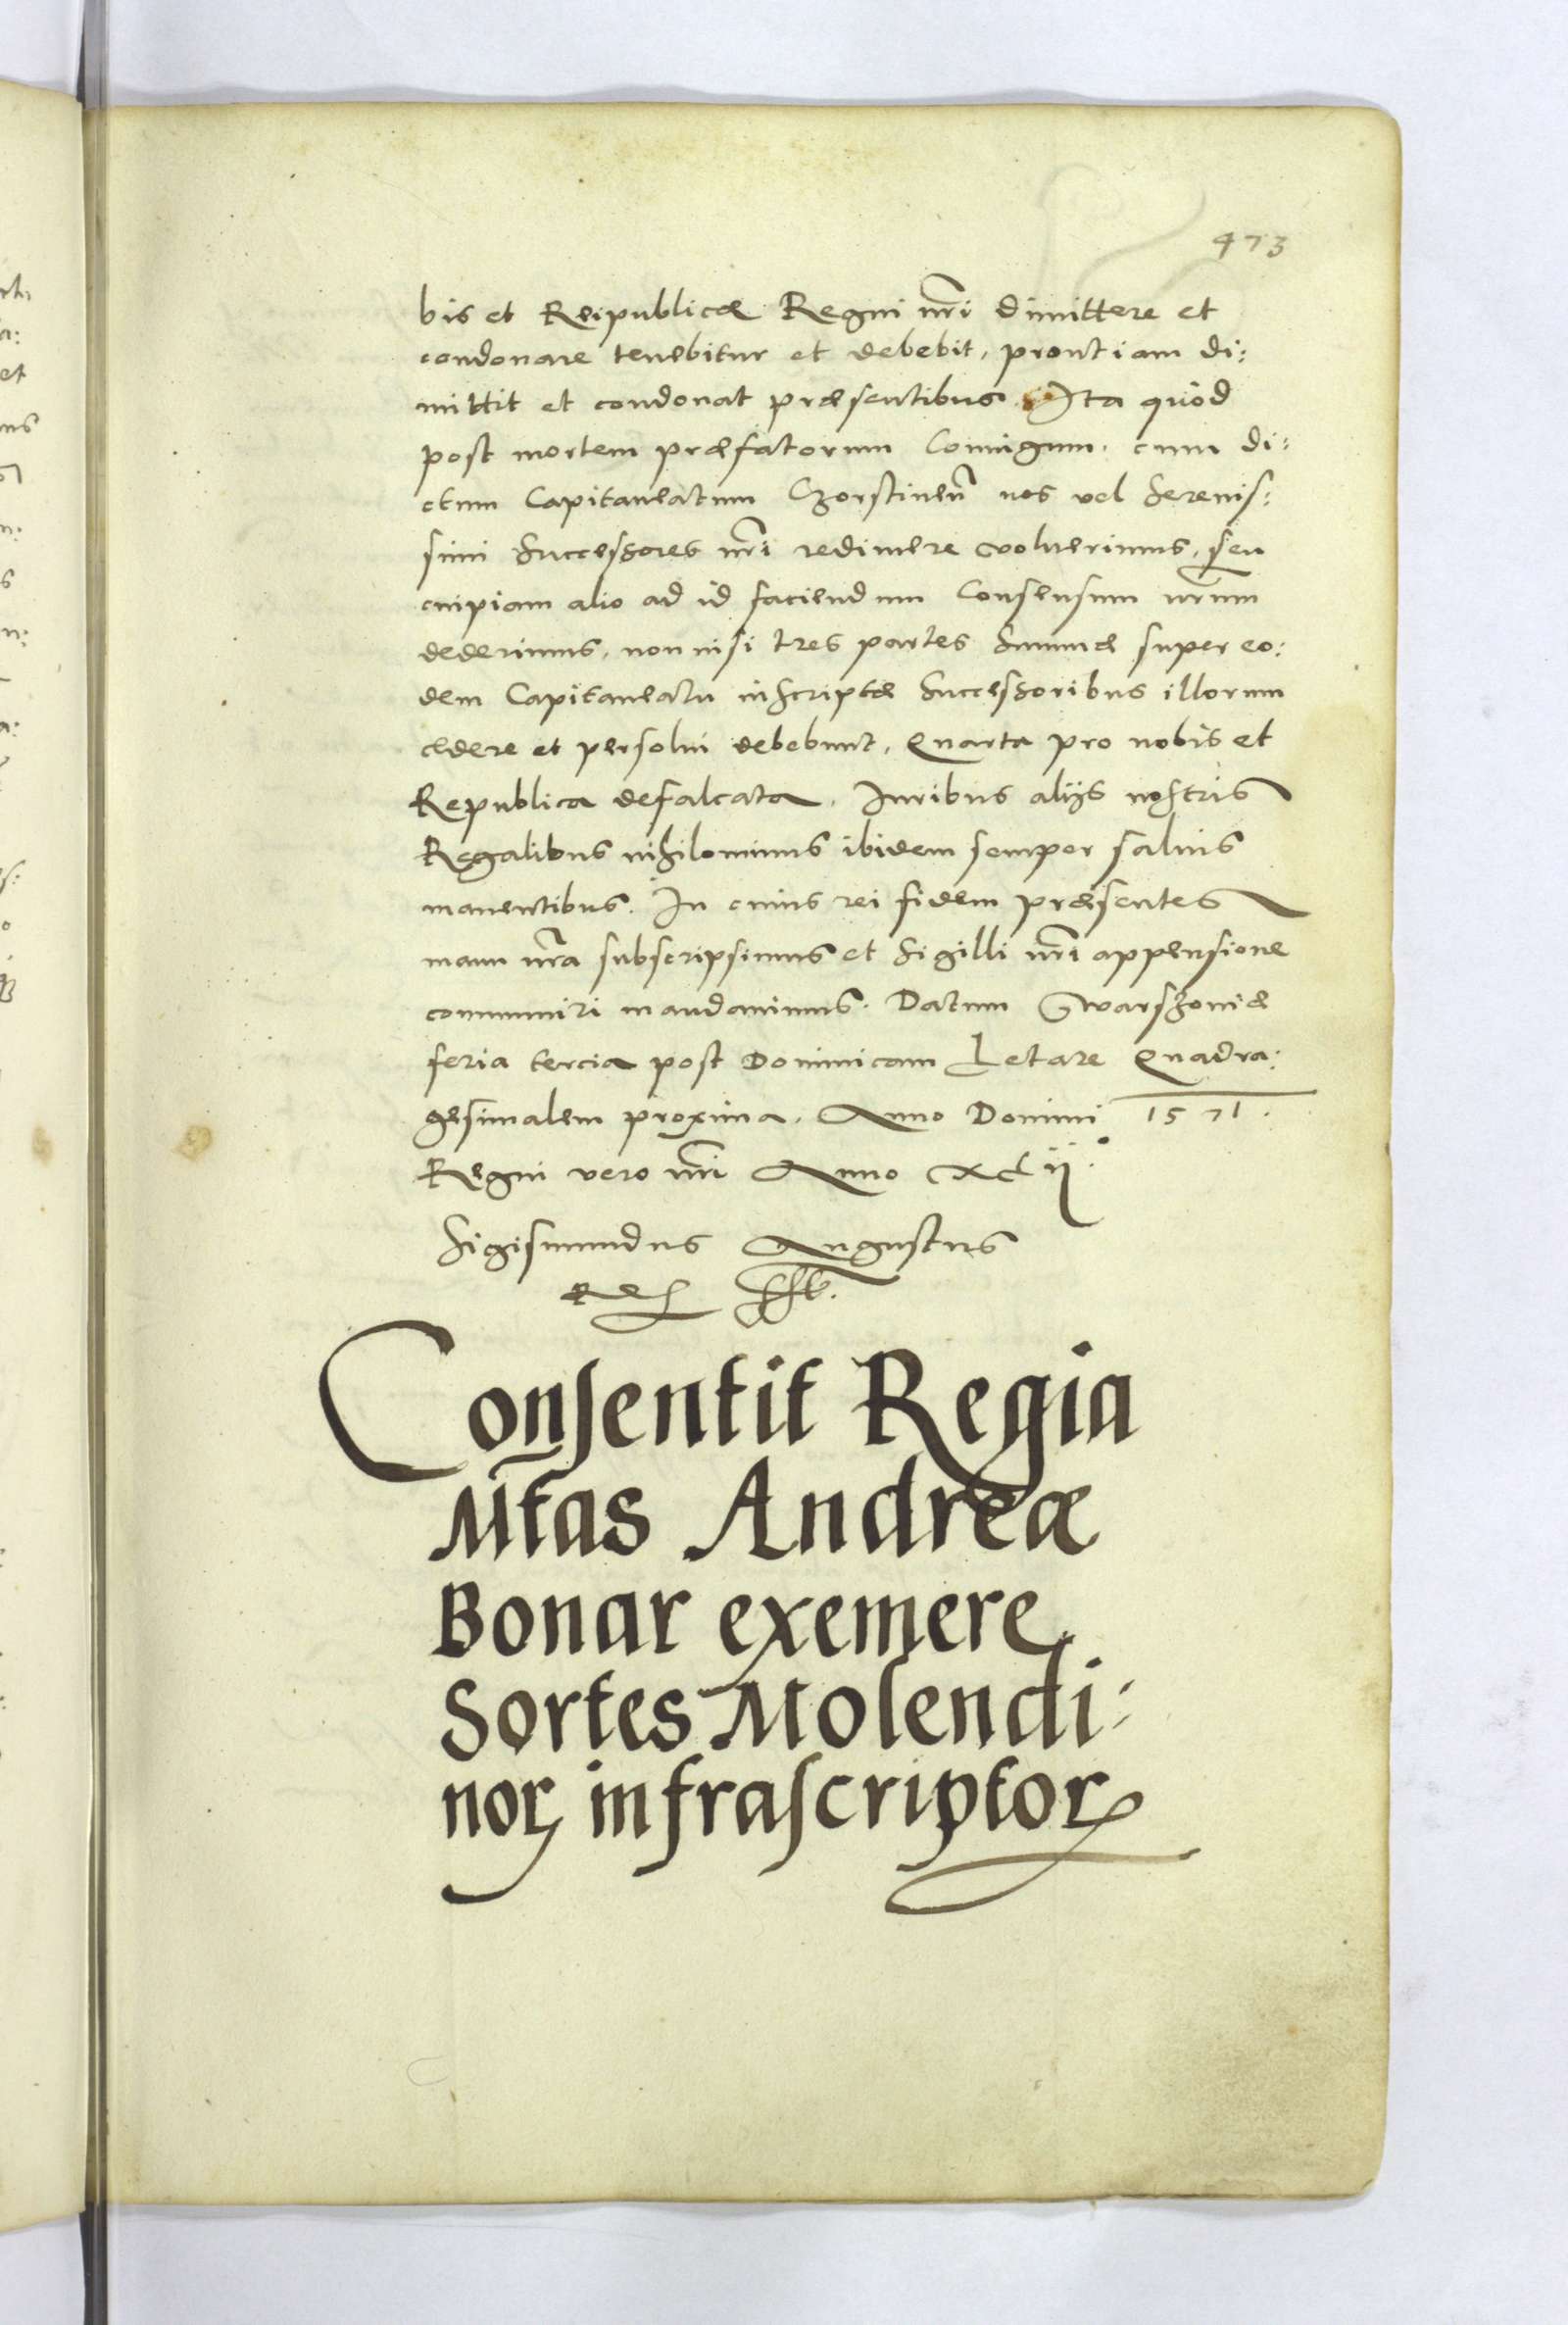 473
bis et Reipublicæ Regni nr̃i dimittere et
condonare tenebitur et debebit, prout iam di:
mittit et condonat præsentibus. Ita quòd
post mortem præfatorum Coniugum, cum di:
ctum Capitaneatum Czorstinen̄ nos vel Serenis:
simi Successores nr̃i redimere voluerimus, seu
cuipiam alio ad id faciendum Consensum nr̃um
dederimus, non nisi tres partes Summæ super eo:
dem Capitaneatu inscriptæ Successoribus illorum
cedere et persolui debebunt, Quarta pro nobis et
Republica defalcata. Iuribus alijs nostris
Regalibus nihilominus ibidem semper saluis
manentibus. In cuius rei fidem præsentes
manu nr̃a subscripsimus et Sigilli nr̃i appensione
communiri mandauimus. Datum Warszouiæ
feria tercia post Dominicam Letare Quadra:
gesimalem proxima. Anno Domini 1571.
Regni vero nr̃i Anno xlij.°
Sigismundus Augustus
Rex sst.
Consentit Regia
Mtas Andreæ
Bonar exemere
Sortes Molendi:
norꝝ infrascriptorꝝ